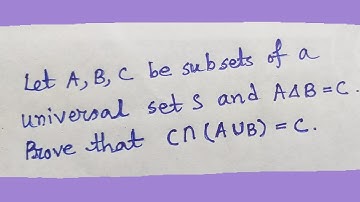 Let A, B, C be subsets of a
universal set S and A∆B = C.
Prove that C∩(A∪B) = C.